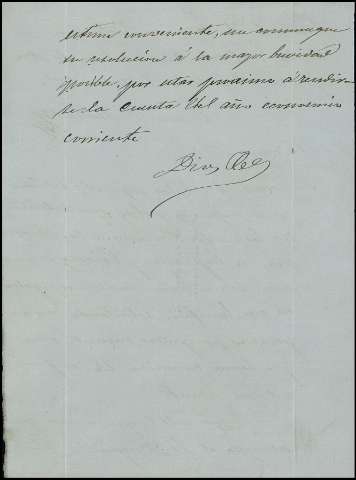 estime conveniente, me comunique
su resolucion á la mayor brevedad
posible, por estar proximo á rendir-
se la Cuenta del año economico
corriente
Dios &c